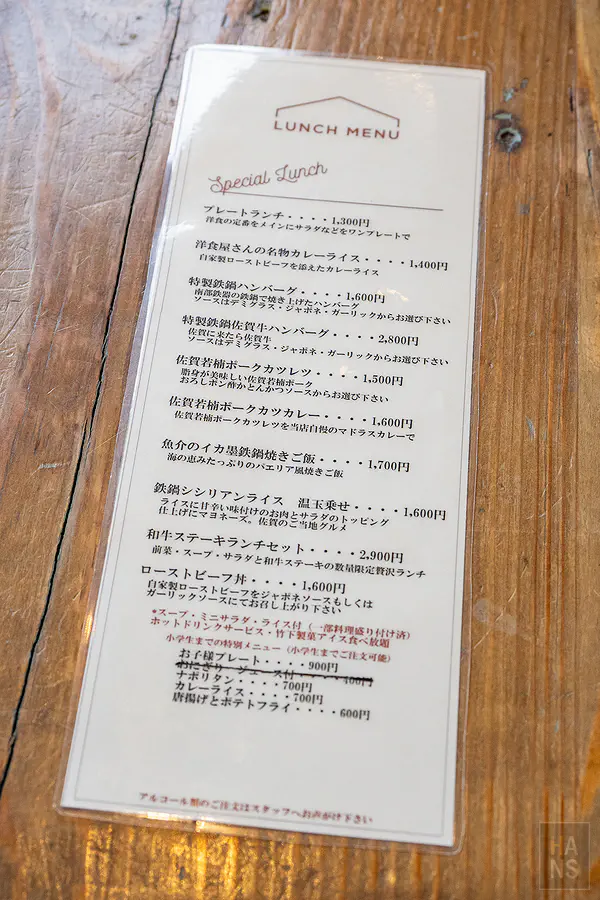 LUNCH MENU
Special Lunch
プレートランチ・・・・1,300円
洋食の定番をメインにサラダなどをワンプレートで
洋食屋さんの名物カレーライス・・・・1,400円
自家製ローストビーフを添えたカレーライス
特製鉄鍋ハンバーグ・・・・1,600円
南部鉄器の鉄鍋で焼き上げたハンバーグ
ソースはデミグラス・ジャポネ・ガーリックからお選び下さい
特製鉄鍋佐賀牛ハンバーグ・・・・2,800円
佐賀に来たら佐賀牛
ソースはデミグラス・ジャポネ・ガーリックからお選び下さい
佐賀若楠ポークカツレツ・・・・1,500円
脂身が美味しい佐賀若楠ポーク
おろしポン酢かとんかつソースからお選び下さい
佐賀若楠ポークカツカレー・・・・1,600円
佐賀若楠ポークカツレツを当店自慢のマドラスカレーで
魚介のイカ墨鉄鍋焼きご飯・・・・1,700円
海の恵みたっぷりのパエリア風焼きご飯
鉄鍋シシリアンライス 温玉乗せ・・・・1,600円
ライスに甘辛い味付けのお肉とサラダのトッピング
仕上げにマヨネーズ。佐賀のご当地グルメ
和牛ステーキランチセット・・・・2,900円
前菜・スープ・サラダと和牛ステーキの数量限定贅沢ランチ
ローストビーフ丼・・・・1,600円
自家製ローストビーフをジャポネソースもしくは
ガーリックソースにてお召し上がり下さい
*スープ・ミニサラダ・ライス付(一部料理盛り付け済)
ホットドリンクサービス・竹下製菓アイス食べ放題
小学生までの特別メニュー(小学生までご注文可能)
お子様プレート・・・・900円
おにぎり・ジュース付・・・・400円
ナポリタン・・・・700円
カレーライス・・・・700円
唐揚げとポテトフライ・・・・600円
アルコール類のご注文はスタッフへお声がけ下さい
HANS